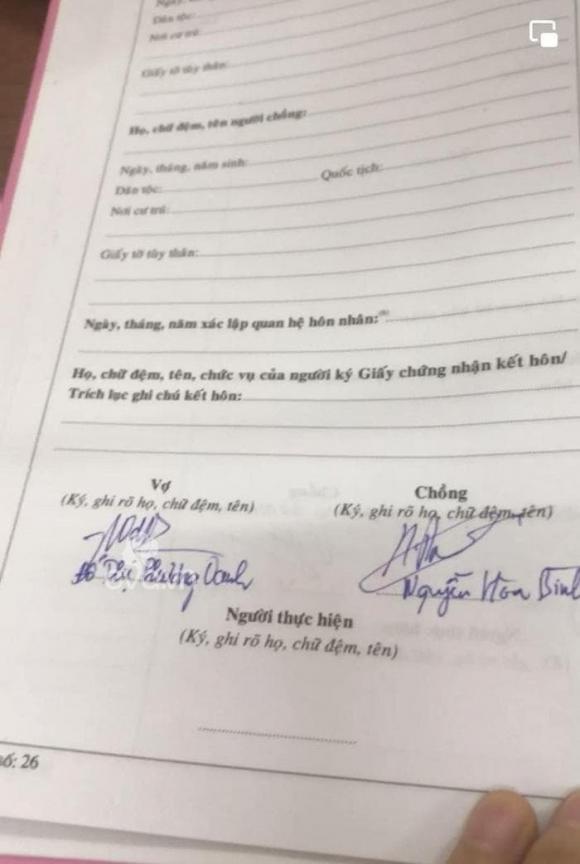 Ngày,
Dân tộc:
Nơi cư trú:
Giấy tờ tùy thân:
Họ, chữ đệm, tên người chồng:
Ngày, tháng, năm sinh:
Dân tộc: Quốc tịch:
Nơi cư trú:
Giấy tờ tùy thân:
Ngày, tháng, năm xác lập quan hệ hôn nhân:
Họ, chữ đệm, tên, chức vụ của người ký Giấy chứng nhận kết hôn/
Trích lục ghi chú kết hôn:
Vợ Chồng
(Ký, ghi rõ họ, chữ đệm, tên) (Ký, ghi rõ họ, chữ đệm, tên)
Phương Oanh Nguyễn Hòa Bình
Người thực hiện
(Ký, ghi rõ họ, chữ đệm, tên)
số: 26